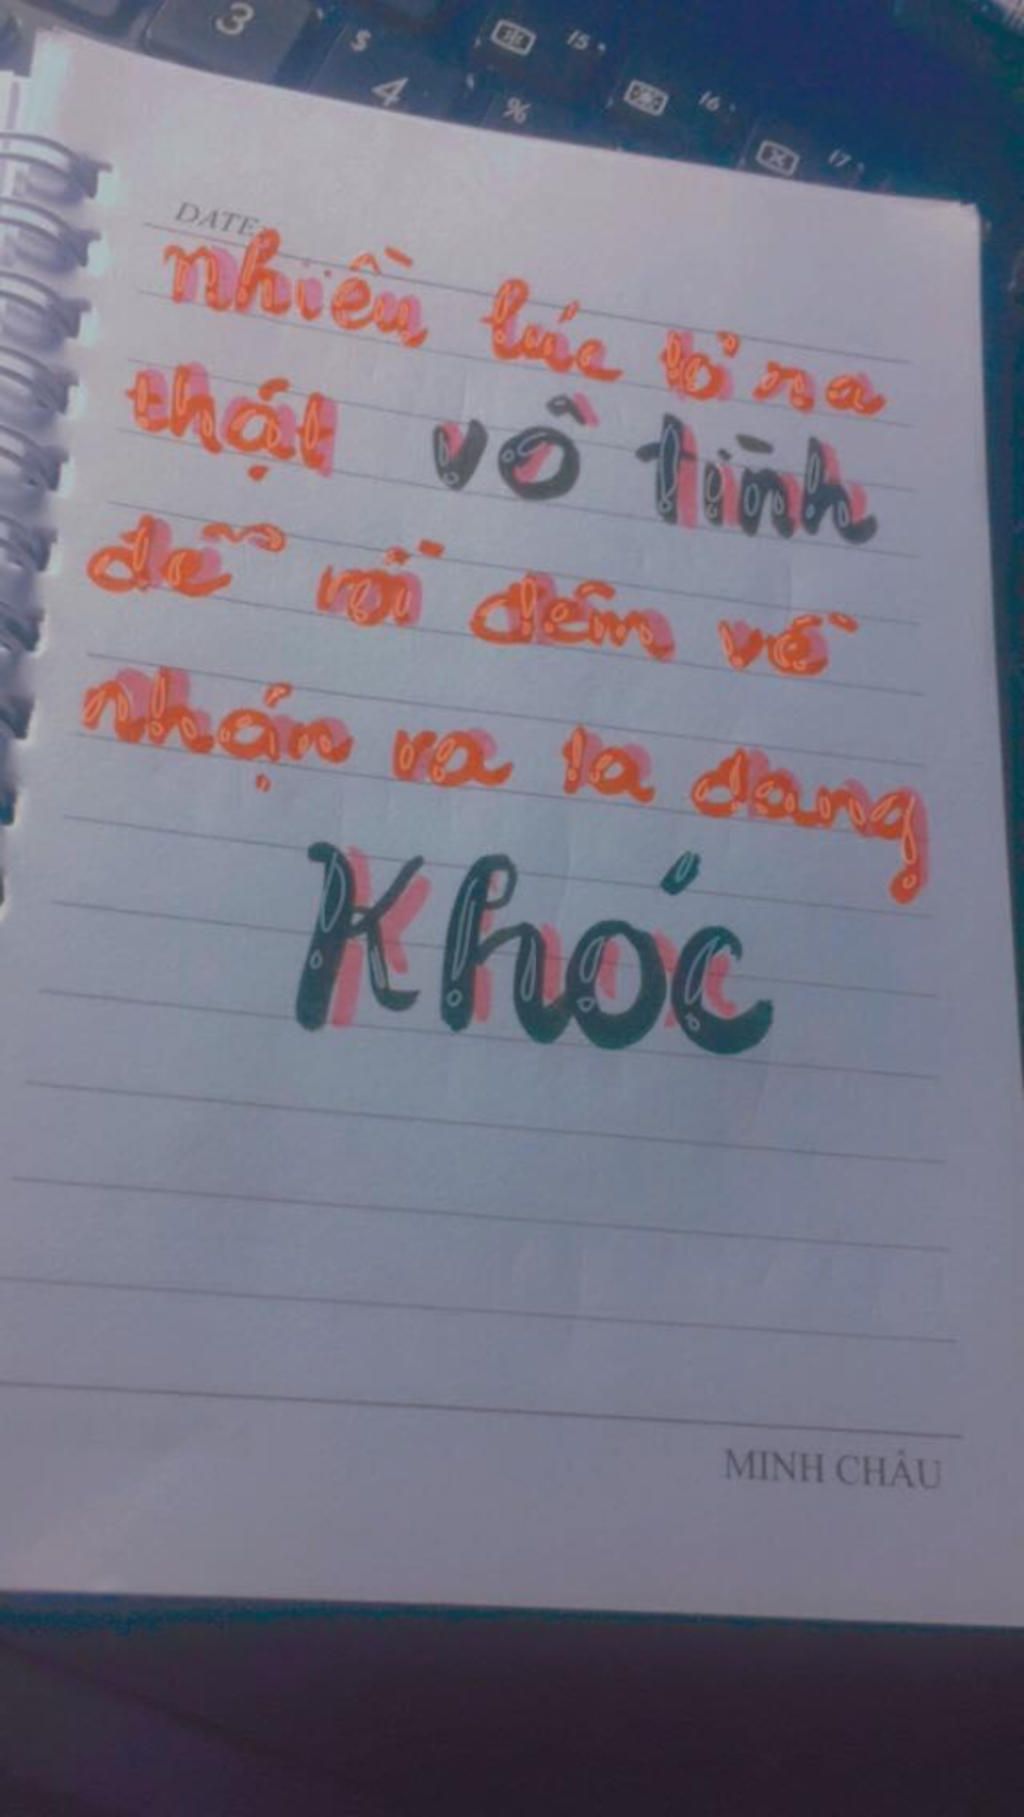 3
$
4
%
15
16
17
DATE
nhiều lúc tỏ ra
thật vô tình
để rồi đêm về
nhận ra ta đang
Khóc
MINH CHÂU